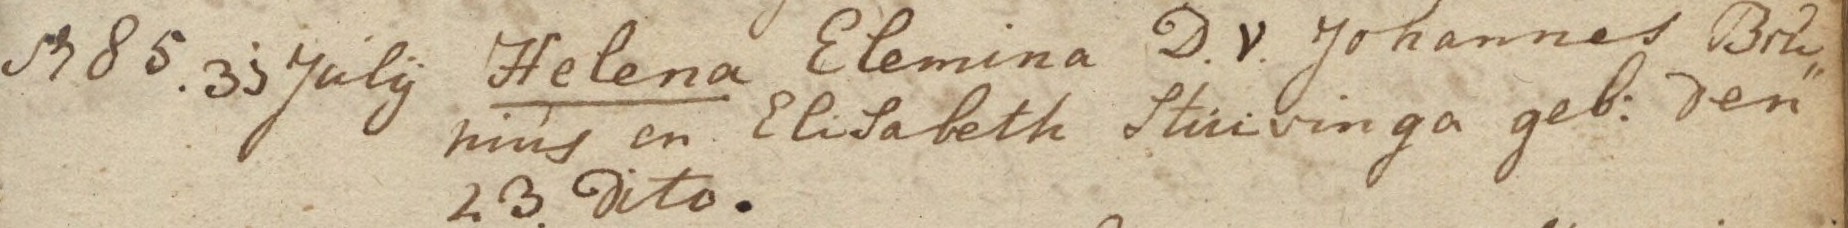 N 85. 31 Julij Helena Elemina D. v. Johannes Brú„
niús en Elisabeth Stúivinga geb: den
23 Dito.